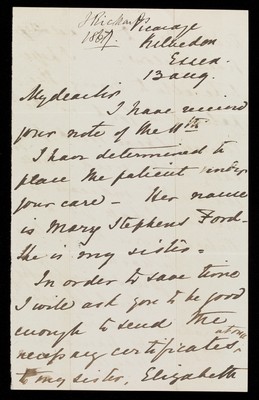 Vicarage
1867.
Kelvedon
Essex.
13 Aug.
My dear Sir
I have received
your note of the 11th
I have determined to
place the patient under
your care – Her name
is Mary Stephens Ford –
She is my sister =
In order to save time
I will ask you to be good
enough to send the
at once
necessary certificates
to my sister, Elizabeth